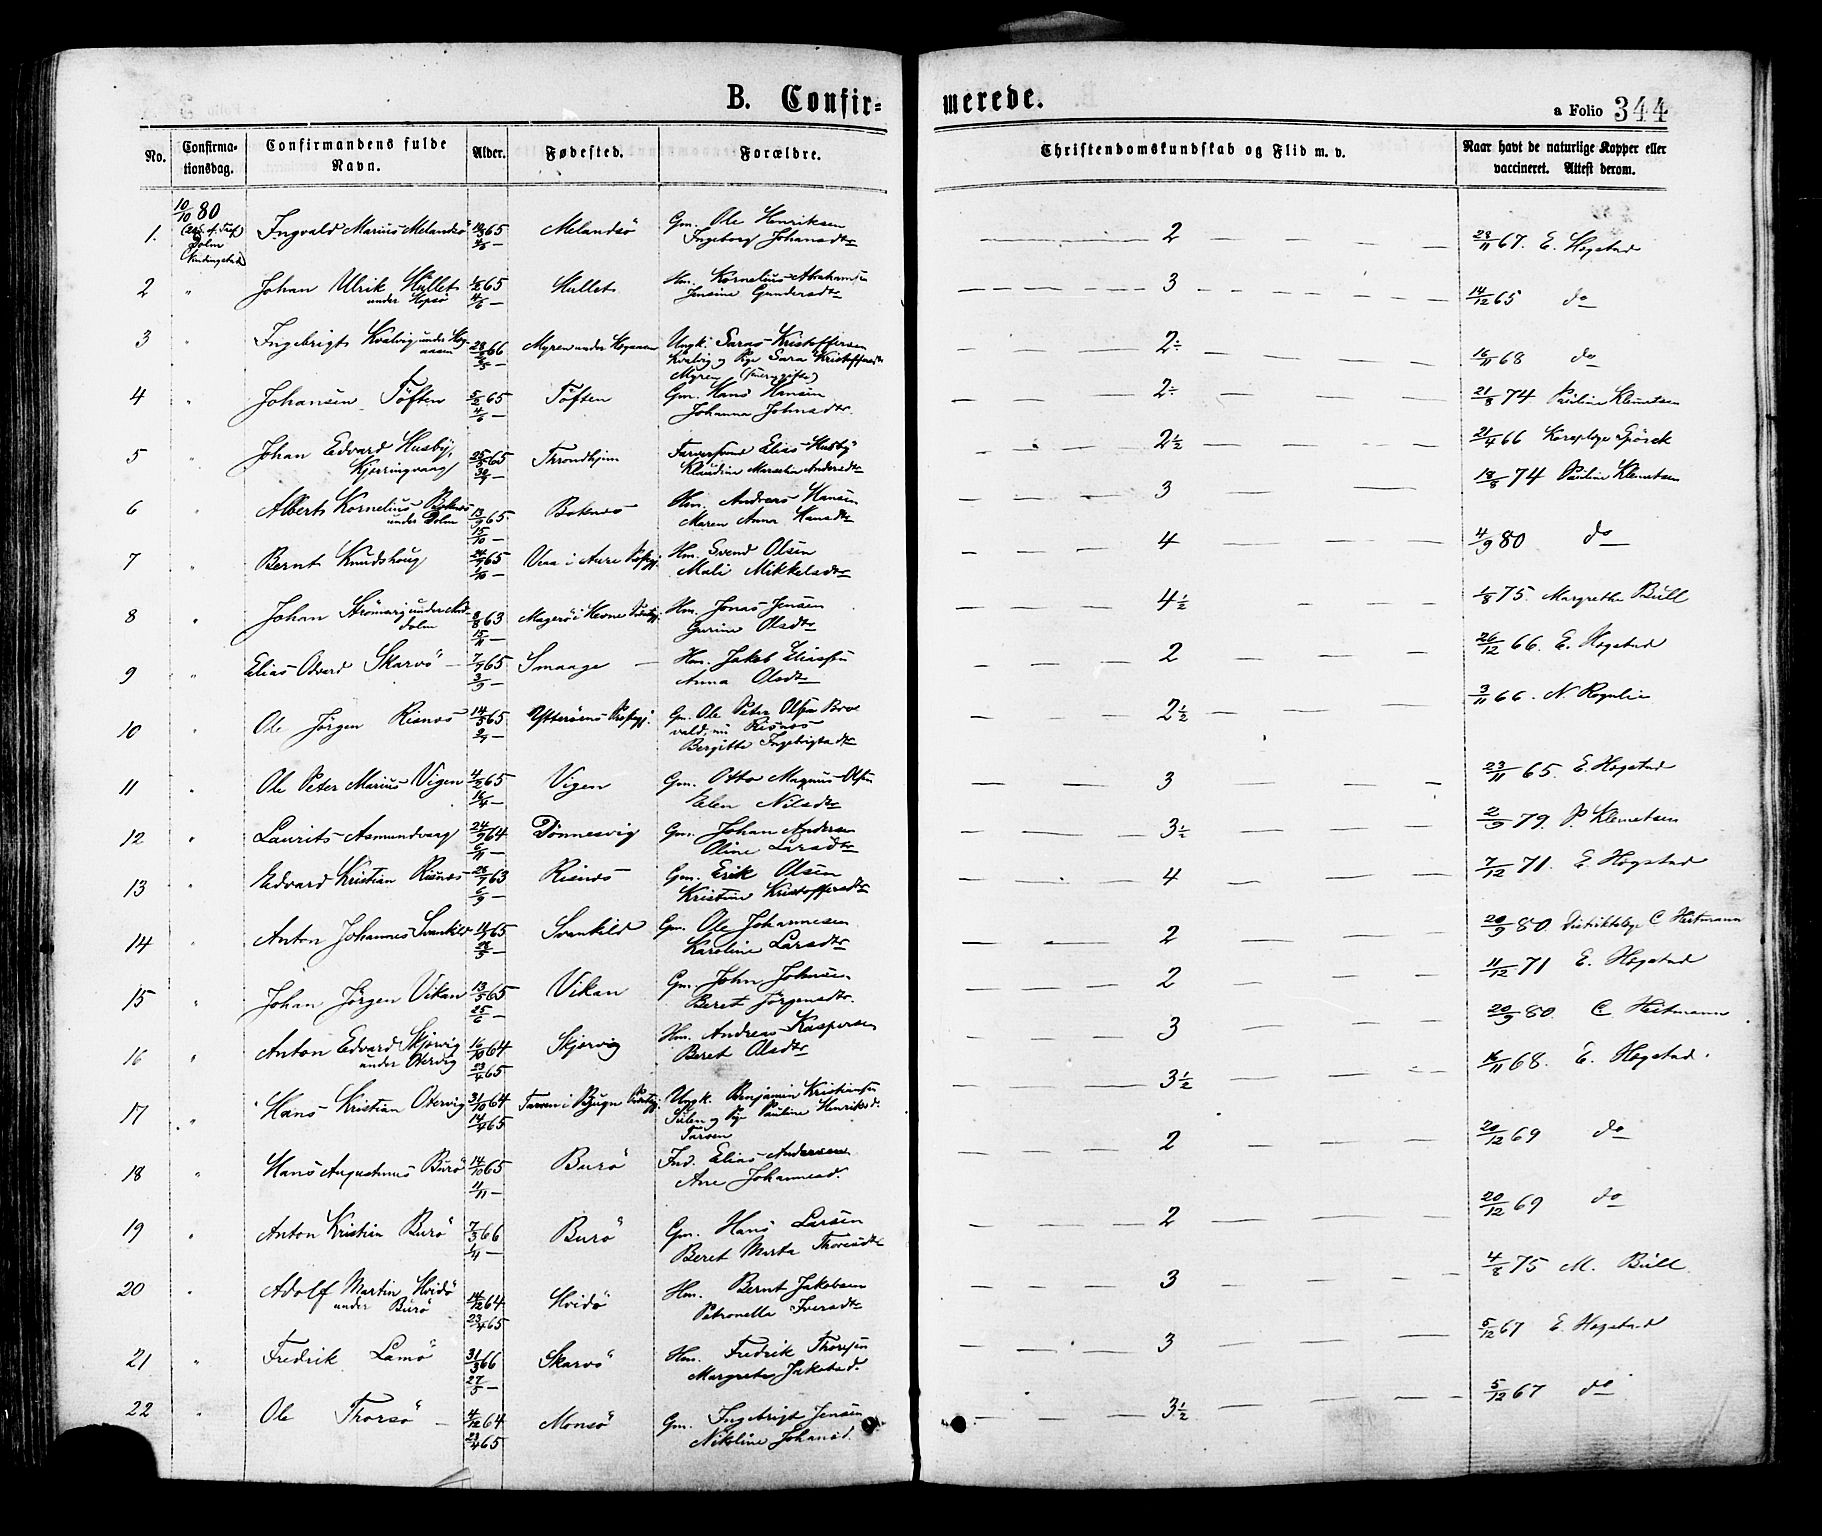 B. Confir-
merede.
a Folio 344
No.
Confirma-
tionsdag.
Confirmandens fulde
Navn.
Alder.
Fødested.
Forældre.
Christendomskundskab og Flid m. v.
Naar havt de naturlige Kopper eller
vaccineret. Attest derom.
10/10 80
Dolm
1. Ingvald Marius Melandsö 65 Melandsö Gm. Ole Henriksen
Ingeborg Johansdtr
2 23/11 67. E. Hogstad
2 " Johan Ulrik Hullet 65 Hullet Hm. Kornelius Abrahamsen
under Hopsö 4/6 — Jensine Gundersdtr
3 14/12 65 do
3 " Ingebrigt Kvalvig under Hog-
aasen 66 Myren under Hogaasen Ungk. Saras Kristoffersen
Kvalvig og Pige Sara Kristoffersdtr
Myren
2÷ 16/11 68 do
4 " Johansen Töften 5/2 65 Töften Gm. Hans Hansen
4/6 — Johanna Johnsdtr.
2÷ 21/8 74 Pauline Klemetsen
5 " Johan Edvard Husby, 65 Throndhjem Farversvend Elias Husby
Kjerringvaag Klaudine Andersdtr
2½ 21/4 66 Korpslæge
6 " Albert Kornelius Boknes 13/9 65. Boknes Hm. Andreas Hansen
under Dolm 15/10 — Maren Anna Hansdtr
3 18/8 74 Pauline Klemetsen
7 " Bernt Knudshoug 65 i Aure Prstgj. Hm. Svend Olsen
Mali Mikkelsdtr
4 4/9 80 do
8 " Johan under
dolm 8/8 63 Magerö i Hevne Prstgj. Hm. Jonas Jensen
15/11 — Gurine Olsdtr
4½ 1/8 75. Margrethe Büll
9 " Elias Odvard Skarvö — 65 Smaage — Hm. Jakob Eliassen
3/9 — Anna Olsdtr
2 26/12 66. E. Hogstad
10 " Ole Jörgen Risnes 14/5 65. Ytterøens Prstgj. Gm. Ole Peter Olsen
vald, nu Risnes
Bergitte Ingebrigtsdtr
2½ 3/11 66. N. Rognlie
11 " Ole Peter Marius Vigen 65 Vigen Gm. Otto Magnus Olsen
Elen Nilsdtr
3 23/11 65. E. Hogstad
12 " Laurits Asmundvaag 24/9 64 Dönnesvig Gm. Johan Andersen
6/11 — Oline Larsdtr
3½ 2/9 79. P. Klemetsen
13 " Edvard Kristian Risnes 63 Risnes Gm. Erik Olsen
6/9 — Kristine Kristoffersdtr
4 7/12 71. E. Hogstad
14 " Anton Johannes Svankild 65 Svankild Gm. Ole Johannesen
Karoline Larsdtr
2 20/9 80 Distriktslæge C Heitmann
15 " Johan Jörgen Vikan 13/5 65 Vikan Gm. John Johnsen
25/6 — Beret Jörgensdtr.
2 11/12 71 E. Hogstad
16 " Anton Edvard Skjervig 16/10 64 Skjervig Hm. Andreas Kaspersen
under Otervig 23/4 65 Beret Olsdtr
3 20/9 80. C Heitmann
17 " Hans Kristian Otervig 31/10 64 Tarven i Bjugn Prstgj. Ungk. Benjamin Kristiansen
14/4 65 og Pige Pauline Henriksd.
Tarven
3½ 16/11 68. E. Hogstad.
18 " Hans Augustinus Burö 14/10 65 Burö Ind. Elias Andersen
11/11 — Ane Johannesd.
2 20/12 69 do
19 " Anton Kristian Burö 7/3 66 Burö Gm. Hans Larsen
Beret Marta Thoresdtr
2 20/12 69 do
20 " Adolf Martin Hvidö 14/12 64 Hvidö Hm. Bernt Jakobsen
under Burö 23/4 65 Petronella Iversdtr
3 4/8 75 M. Büll
21 " Fredrik Lamö 31/3 66 Skarvö Hm. Fredrik Thoresen
27/5 — Margrete Jakobsd.
3 5/12 67 E. Hogstad
22 " Ole Thorsö — 4/12 64 Monsö Gm. Ingebrigt Jensen
23/4 65 Nikoline Johansd.
3½ 5/12 67 do